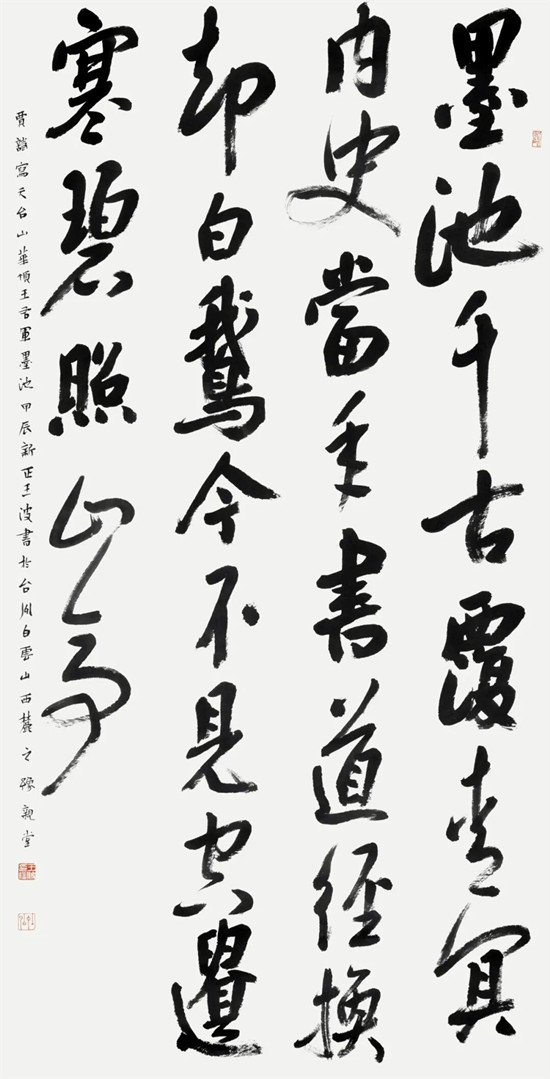 墨池千古覆青冥
内史當年書道經換
却白鵝今不見空遺
寒碧照山亭
賈謙寫天台山華頂王右軍墨池甲辰新正王波書於台州白雲山西麓之豫親堂